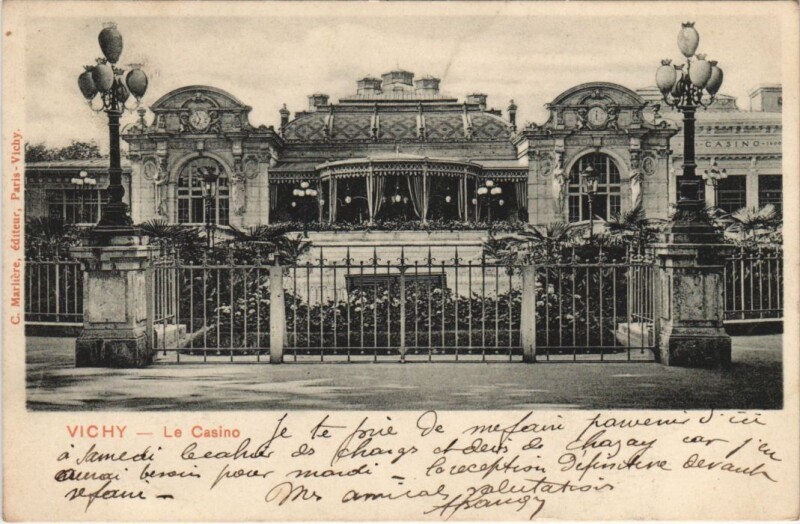 C. Marlière, éditeur, Paris-Vichy.
CASINO
VICHY — Le Casino
Je te prie de me faire parvenir d'ici
à samedi le cahier des charges et devis de Chazay car j'en
aurai besoin pour mardi — la réception définitive devant
se faire —
Mes amicales salutations